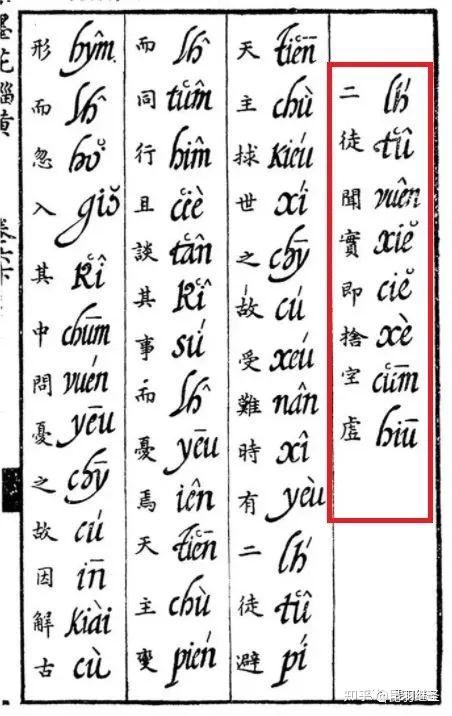 二徒聞實即捨空虛
lh́ tʿû vuên xiĕ ciĕ xè cʿūm hiū
天主捄世之故受難時有二徒避
tʿiēn chù kiéu xí chȳ cú xeú nân xî yèu lh́ tʿû pí
而同行且談其事而憂焉天主變
lĥ tʿûm hîm cʿiè tʿân kʿî sú lĥ yēu iên tʿiēn chù pién
形而忽入其中問憂之故因解古
hŷm lĥ hŏ giŏ kʿî chūm vuén yēu chȳ cú īn kiài cù
知乎 @昆羽继圣